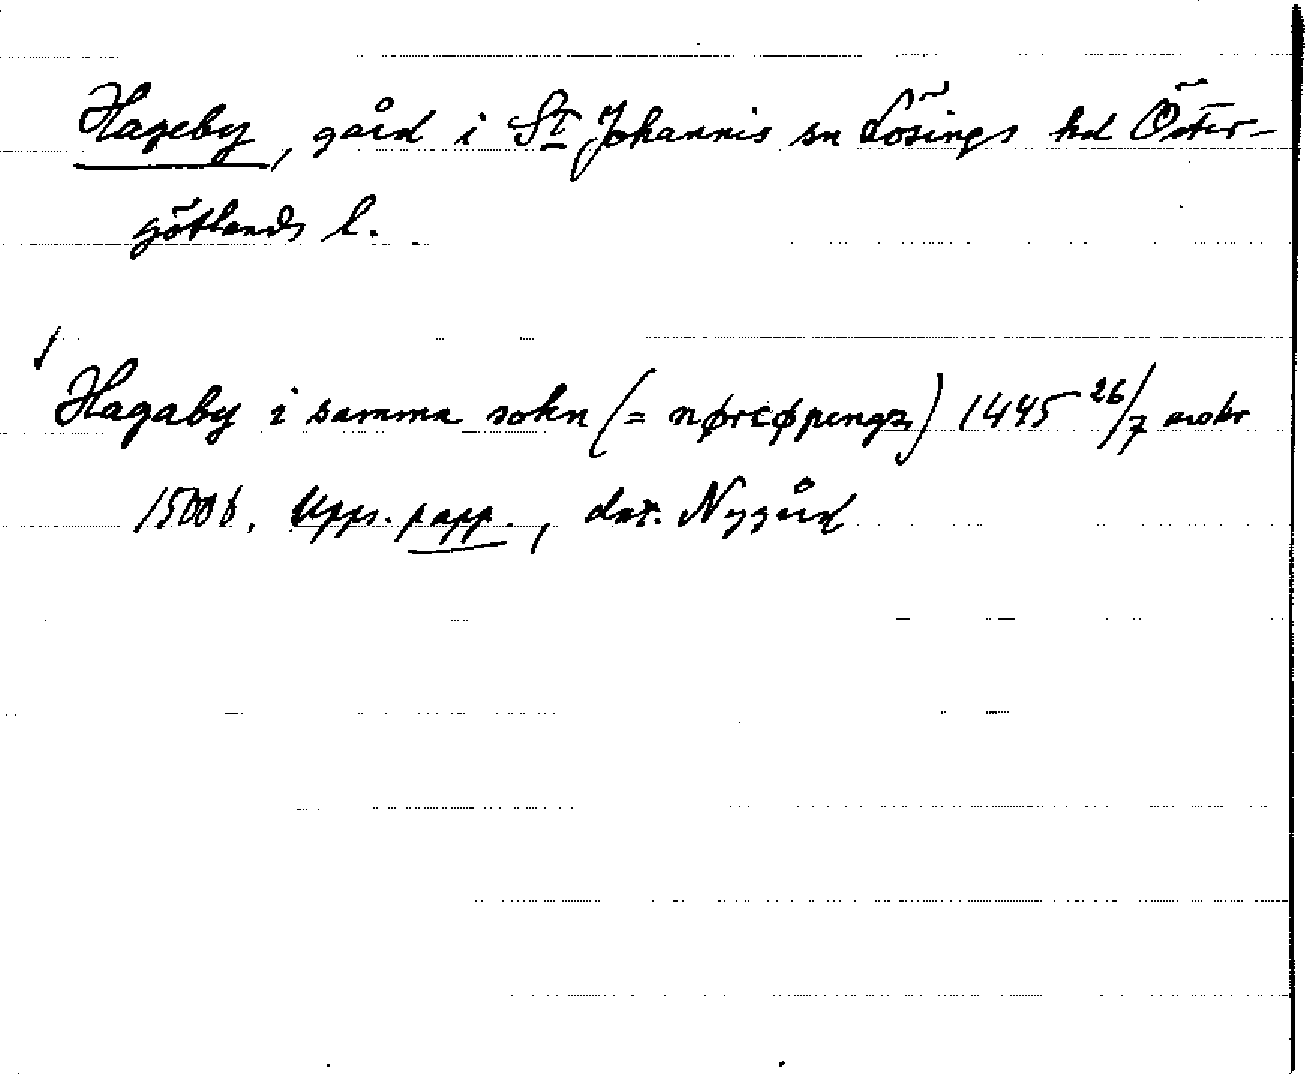 Hageby, gård i St Johannis sn Lösings hd Öster-
götlands l.
Hagaby i samma sokn (= nørcøpungx) 1445 26/7 avskr
1500b. Upps. papp., dat. Nygård